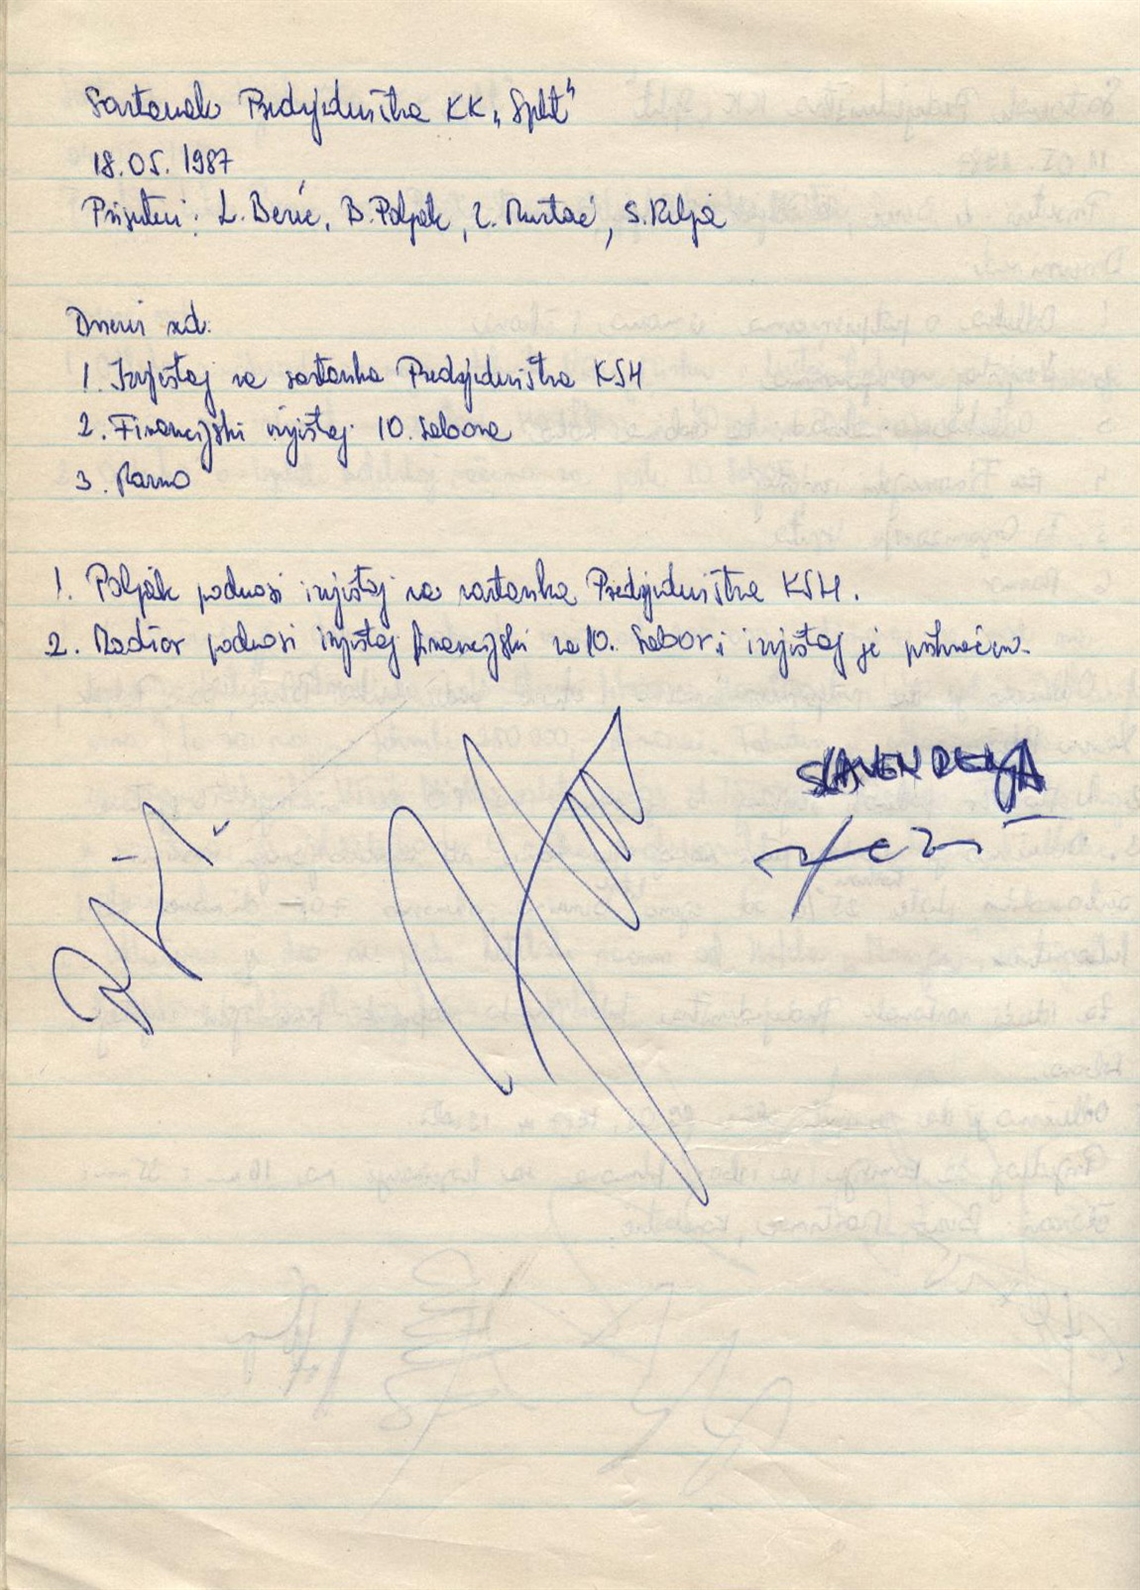 Sastanak Predsjedništva KK „Split"
18.05.1987
Prisutni: L. Berić, B. Poljak, Z. , S. Relja
Dnevni red:
1. Izvještaj sa sastanka Predsjedništva KSH
2. Financijski izvještaj 10. Sabora
3. Razno
1. Poljak podnosi izvještaj sa sastanka Predsjedništva KSH.
2. podnosi izvještaj financijski za 10. Sabor i izvještaj je prihvaćen.
SLAVEN RELJA